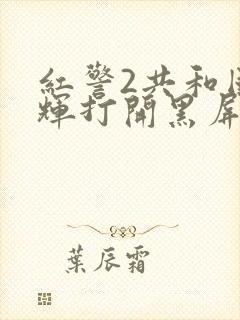 紅警2共和
輝打開黑屏
葉辰霜